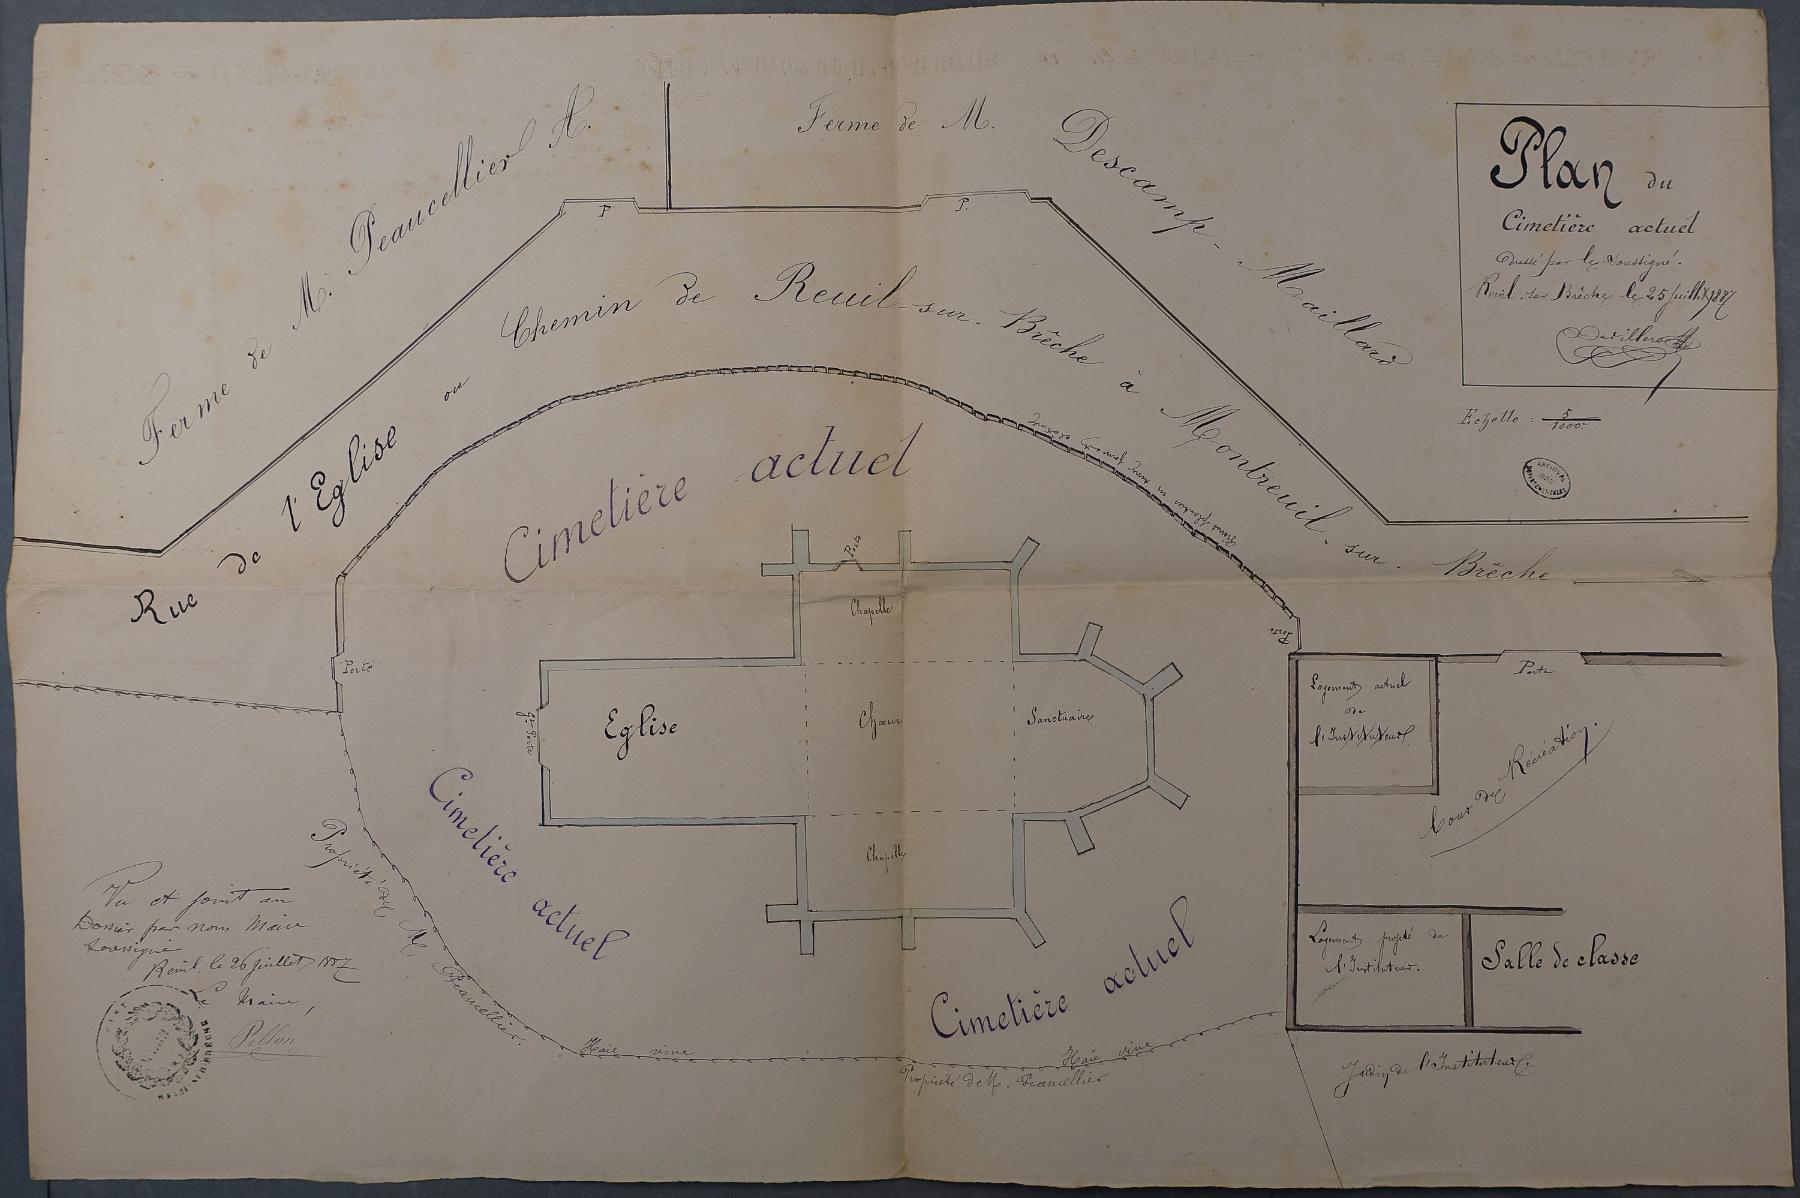 Plan du
Cimetière actuel
dressé par le soussigné.
Reuil-sur-Brêche le 25 Juillet 1887
Echelle : 5/1000
ARCHIVES
DEPARTEMENTALES
OISE
Ferme de M. Peaucellier A.
Ferme de M. Descamp-Maillard
P
P.
Rue de l'Eglise ou Chemin de Reuil-sur-Brêche à Montreuil-sur-Brêche
Cimetière actuel
Porte
Porte
Porte
Chapelle
Porte
Gde Porte
Eglise
Chœur
Sanctuaire
Chapelle
Logement actuel
de
l'Instituteur
Cour de Récréation
Cimetière actuel
Cimetière actuel
Propriété de M. Peaucellier
Haie vive
Haie vive
Propriété de M. Peaucellier
Logement projeté de
l'Instituteur.
Salle de classe
Jardin de l'Instituteur
Vu et joint au
Dossier par nous Maire
soussigné
Reuil, le 26 Juillet 1887
Le Maire,